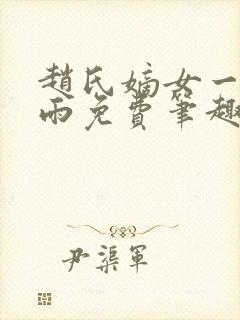 趙氏嫡女一
雨免費筆趣
尹渠軍